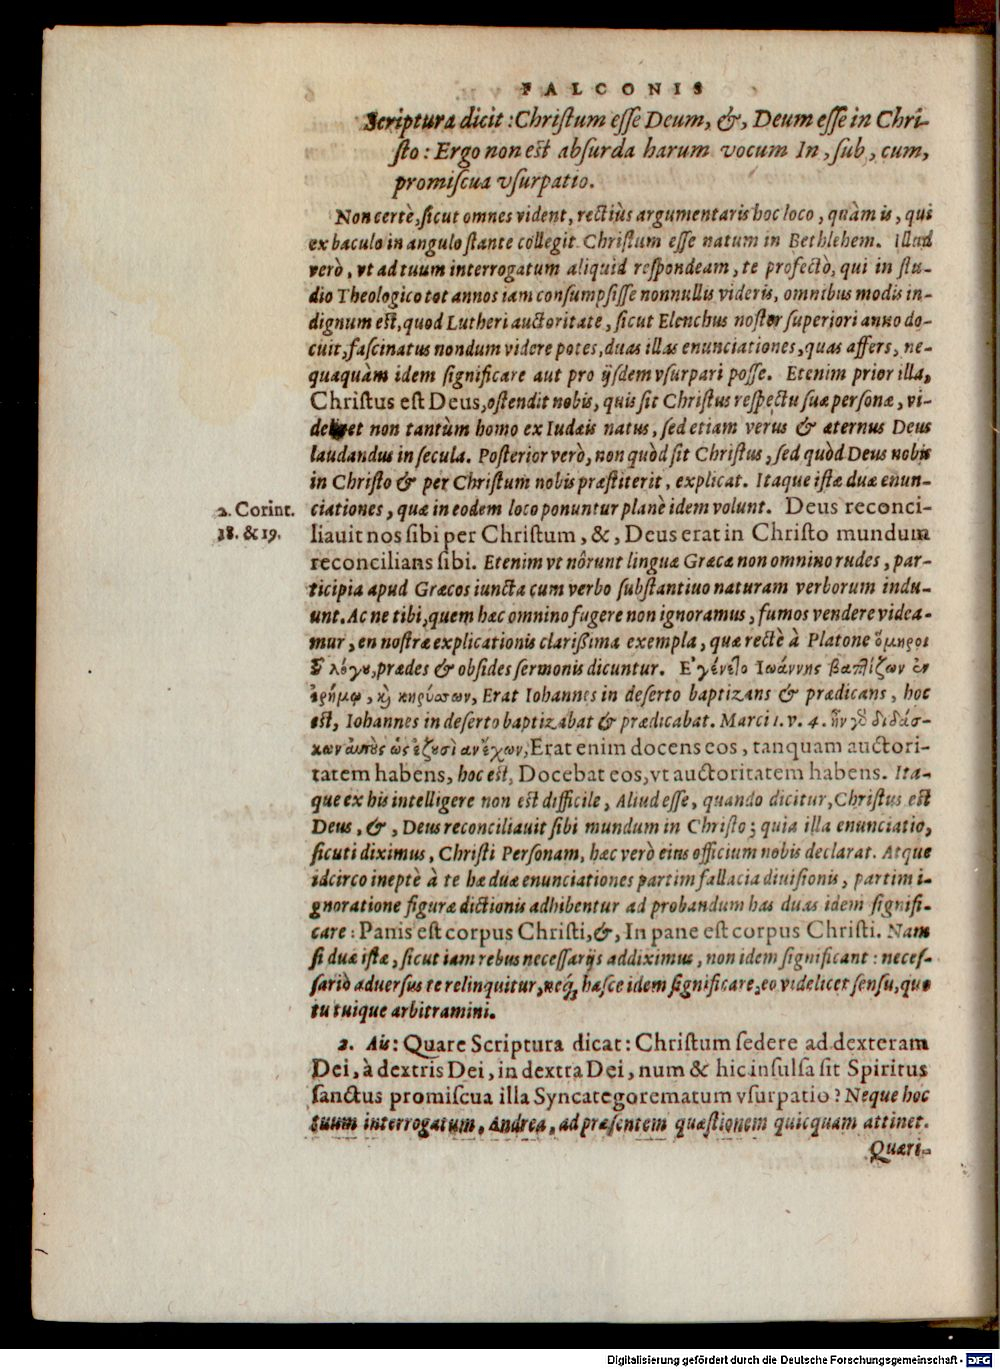 FALCONIS
Scriptura dicit: Christum esse Deum, &, Deum esse in Chri-
sto: Ergo non est absurda harum vocum In, sub, cum,
promiscua vsurpatio.
Non certè, sicut omnes vident, rectiùs argumentaris hoc loco, quàm is, qui
ex baculo in angulo stante collegit Christum esse natum in Bethlehem. Illud
verò, vt ad tuum interrogatum aliquid respondeam, te profectò, qui in stu-
dio Theologico tot annos iam consumpsisse nonnullis videris, omnibus modis in-
dignum est, quod Lutheri auctoritate, sicut Elenchus noster superiori anno do-
cuit, fascinatus nondum videre potes, duas illas enunciationes, quas affers, ne-
quaquàm idem significare aut pro ijsdem vsurpari posse. Etenim prior illa,
Christus est Deus, ostendit nobis, quis sit Christus respectu suæ personæ, vi-
delicet non tantùm homo ex Iudæis natus, sed etiam verus & æternus Deus
laudandus in secula. Posterior verò, non quòd sit Christus, sed quòd Deus nobis
in Christo & per Christum nobis præstiterit, explicat. Itaque istæ duæ enun-
2. Corint. ciationes, quæ in eodem loco ponuntur planè idem volunt. Deus reconci-
18. & 19. liauit nos sibi per Christum, &, Deus erat in Christo mundum
reconcilians sibi. Etenim vt nôrunt linguæ Græcæ non omnino rudes, par-
ticipia apud Græcos iuncta cum verbo substantiuo naturam verborum indu-
unt. Ac ne tibi, quem hæc omnino fugere non ignoramus, fumos vendere videa-
mur, en nostræ explicationis clarißima exempla, quæ rectè à Platone ὅμηροι
τοῦ λόγου, prædes & obsides sermonis dicuntur. Ε'γένετο Ἰωάννης βαπτίζων ἐν
ἐρήμῳ, καὶ κηρύσσων, Erat Iohannes in deserto baptizans & prædicans, hoc
est, Iohannes in deserto baptizabat & prædicabat. Marci 1. v. 4. ἦν γὰρ διδάσ-
κων αὐτοὺς ὡς ἐξουσίαν ἔχων, Erat enim docens eos, tanquam auctori-
tatem habens, hoc est, Docebat eos, vt auctoritatem habens. Ita-
que ex his intelligere non est difficile, Aliud esse, quando dicitur, Christus est
Deus, &, Deus reconciliauit sibi mundum in Christo; quia illa enunciatio,
sicuti diximus, Christi Personam, hæc verò eius officium nobis declarat. Atque
idcirco ineptè à te hæ duæ enunciationes partim fallacia diuisionis, partim i-
gnoratione figuræ dictionis adhibentur ad probandum has duas idem signifi-
care: Panis est corpus Christi, &, In pane est corpus Christi. Nam
si duæ istæ, sicut iam rebus necessarijs addiximus, non idem significant: neces-
sariò aduersus te relinquitur, neq; hasce idem significare, eo videlicet sensu, quo
tu tuique arbitramini.
2. Ais: Quare Scriptura dicat: Christum sedere ad dexteram
Dei, à dextris Dei, in dextra Dei, num & hic insulsa sit Spiritus
sanctus promiscua illa Syncategorematum vsurpatio? Neque hoc
tuum interrogatum, Andrea, ad præsentem quæstionem quicquam attinet.
Quæri-
Digitalisierung gefördert durch die Deutsche Forschungsgemeinschaft - DFG